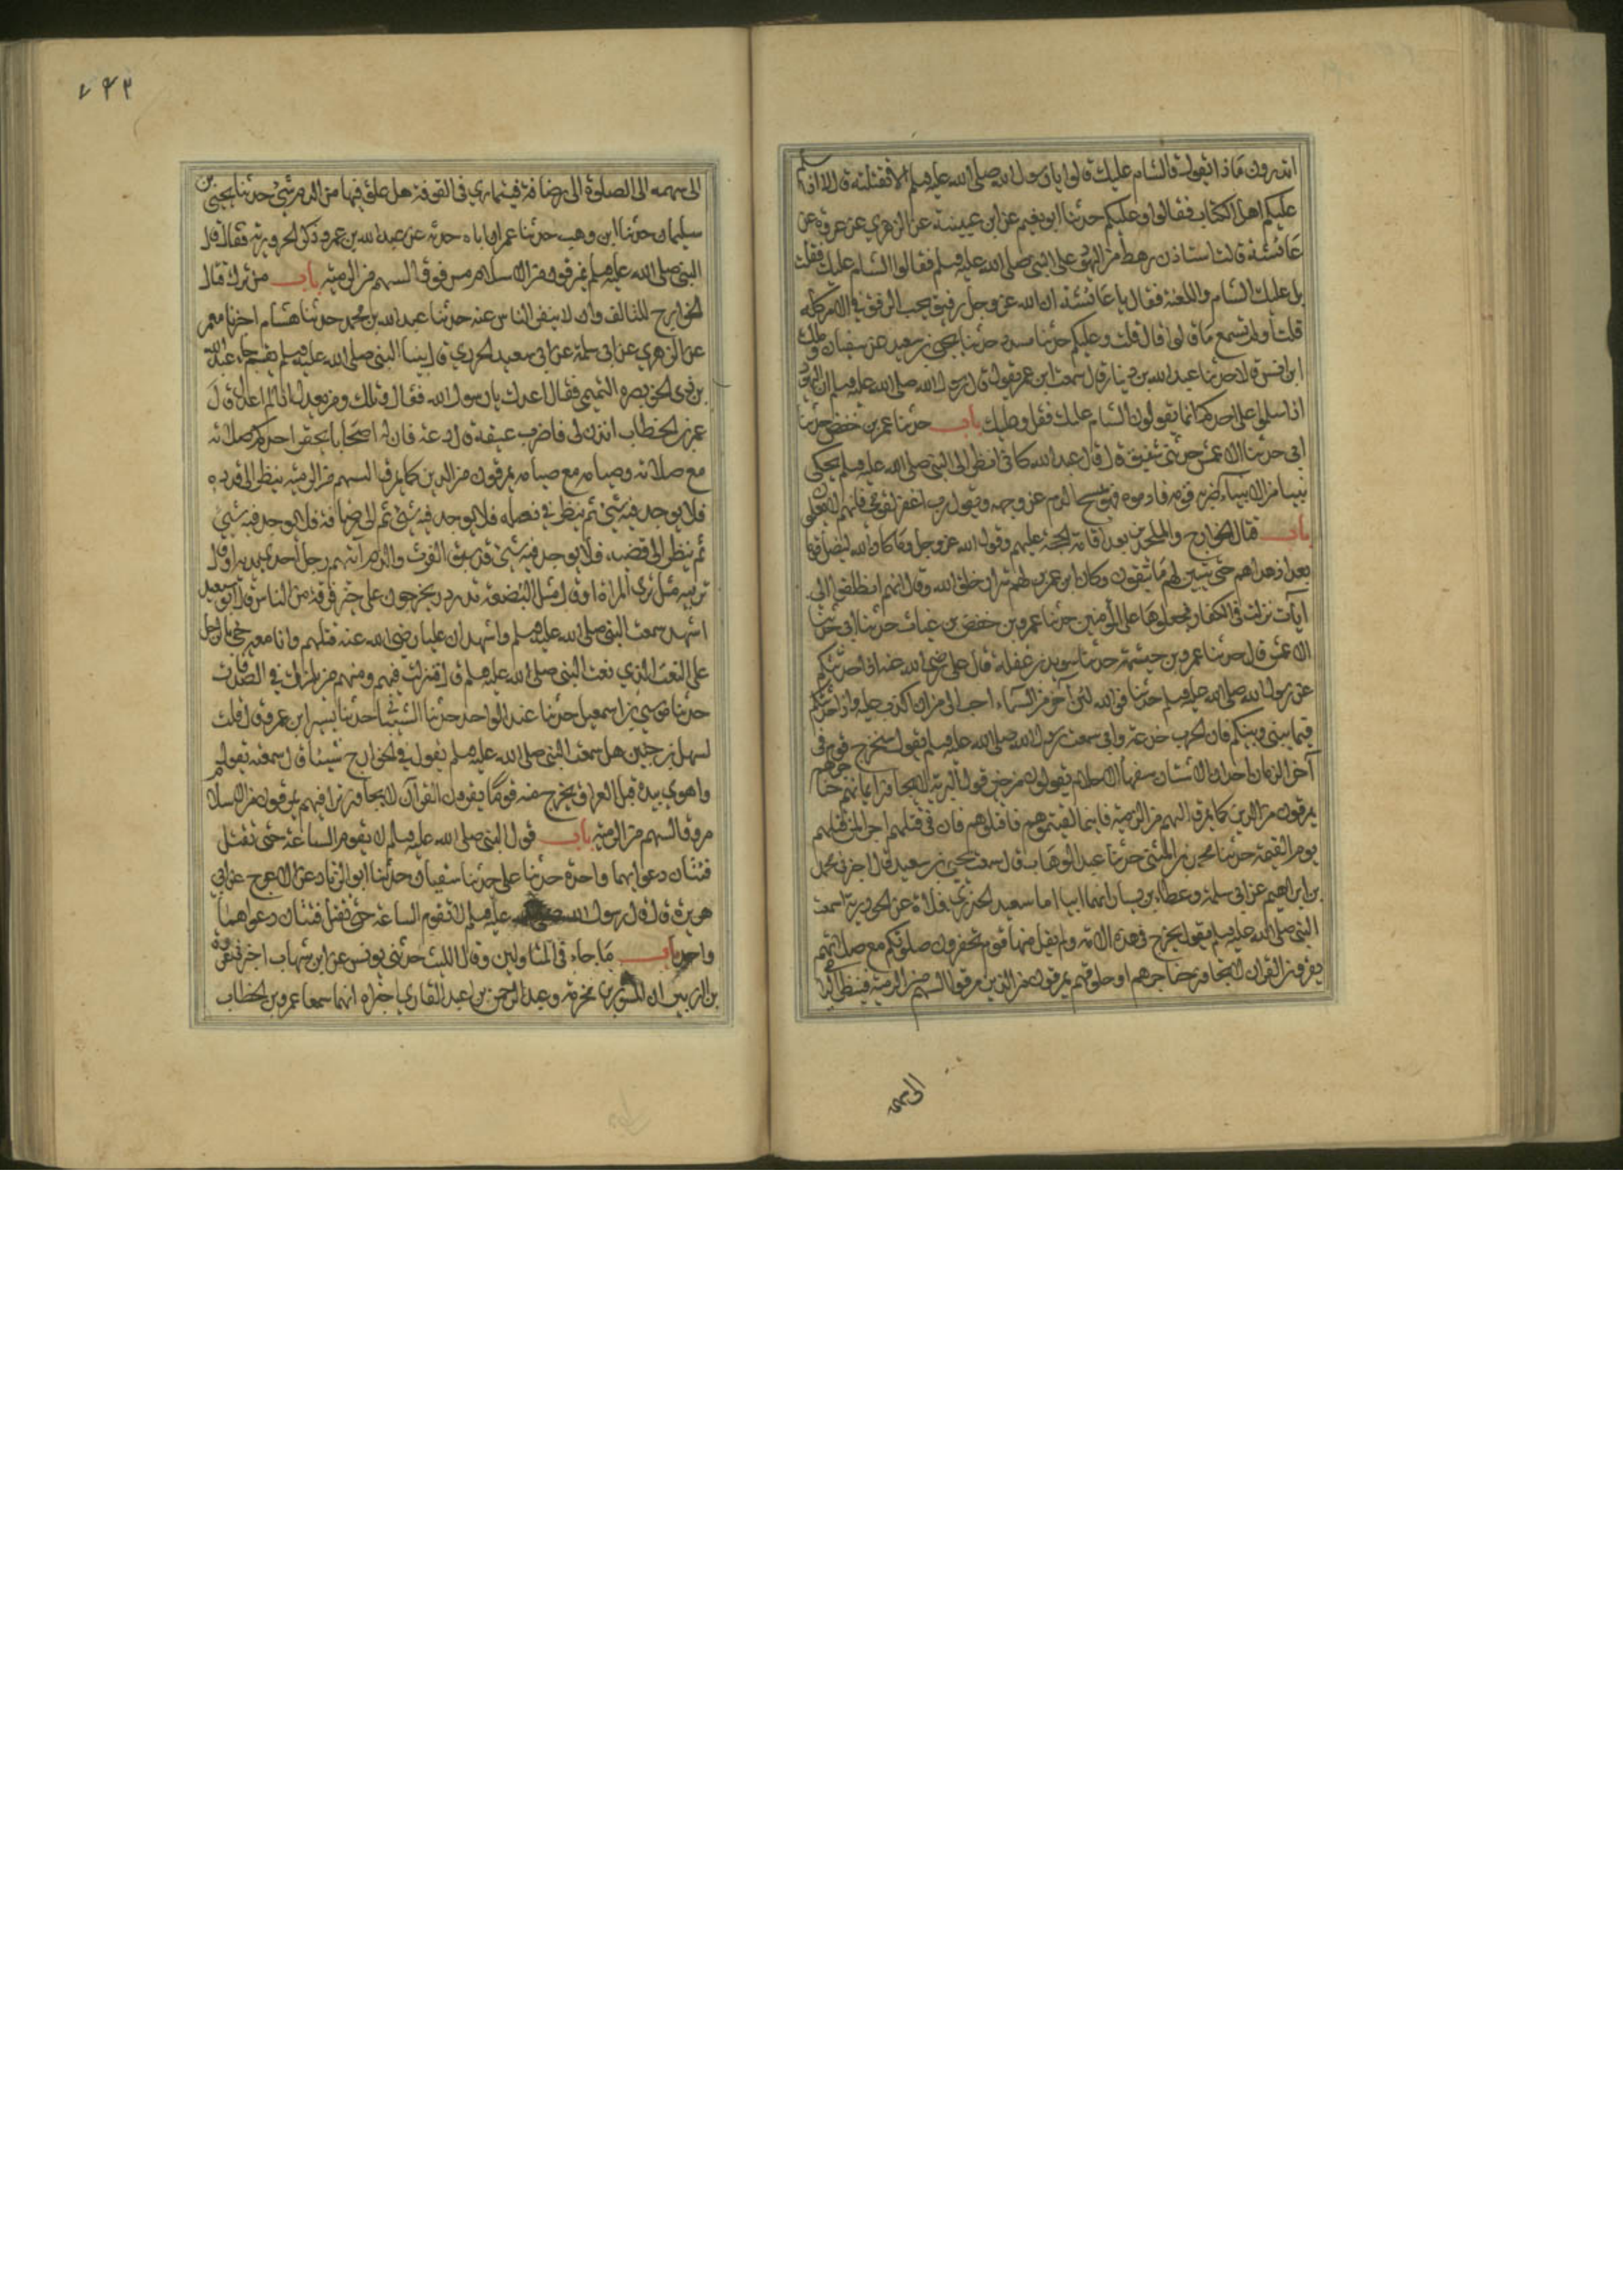 اتدرون ماذا يقول قال السام عليك قالوا يا رسول الله صلى الله عليه وسلم الا نقتله قال لا اذا سلم
عليكم اهل الكتاب فقولوا وعليكم حدثنا ابو نعيم عن ابن عيينة عن الزهري عن عروة عن
عائشة قالت استاذن رهط من اليهود على النبي صلى الله عليه وسلم فقالوا السام عليك فقلت
بل عليك السام واللعنة فقال يا عائشة ان الله عز وجل رفيق يحب الرفق في الامر كله
قلت أولم تسمع ما قالوا قال قلت وعليكم حدثنا مسدد حدثنا يحيى بن سعيد عن سفيان ومالك
ابن انس قالا حدثنا عبد الله بن دينار قال سمعت ابن عمر يقول قال رسول الله صلى الله عليه وسلم ان اليهود
اذا سلموا على احدكم انما يقولون السام عليك فقل وعليك باب حدثنا عمر بن حفص حدثنا
ابي حدثنا الاعمش حدثني شقيق قال قال عبد الله كاني انظر الى النبي صلى الله عليه وسلم يحكي
نبيا من الانبياء ضربه قومه فادموه فهو يمسح الدم عن وجهه ويقول رب اغفر لقومي فانهم لا يعلمون
باب قتال الخوارج والملحدين بعد اقامة الحجة عليهم وقول الله عز وجل وما كان الله ليضل قوما
بعد اذ هداهم حتى يبين لهم ما يتقون وكان ابن عمر يراهم شرار خلق الله وقال انهم انطلقوا الى
آيات نزلت في الكفار فجعلوها على المؤمنين حدثنا عمر بن حفص بن غياث حدثنا ابي حدثنا
الاعمش قال حدثنا عمرو بن خيثمة حدثنا سويد بن غفلة قال علي رضي الله عنه اذا حدثتكم
عن رسول الله صلى الله عليه وسلم حديثا فوالله لئن آخر من السماء احب الي من ان اكذب عليه واذا حدثتكم
فيما بيني وبينكم فان الحرب خدعة واني سمعت رسول الله صلى الله عليه وسلم يقول سيخرج قوم في
آخر الزمان احداث الاسنان سفهاء الاحلام يقولون من خير قول البرية لا يجاوز ايمانهم حناجرهم
يمرقون من الدين كما يمرق السهم من الرمية فاينما لقيتموهم فاقتلوهم فان في قتلهم اجرا لمن قتلهم
يوم القيمة حدثنا محمد بن المثنى حدثنا عبد الوهاب قال سمعت يحيى بن سعيد قال اخبرني محمد
بن ابراهيم عن ابي سلمة وعطاء بن يسار انهما اتيا ابا سعيد الخدري فسالاه عن الحرورية اسمعت
النبي صلى الله عليه وسلم يقول يخرج في هذه الامة ولم يقل منها قوم تحقرون صلوتكم مع صلاتهم
يقرؤن القران لا يجاوز حناجرهم او حلوقهم يمرقون من الدين مروق السهم من الرمية فينظر الرامي
الى سهمه
٧٤٣
الى سهمه الى نصله الى رصافه فيتمارى في الفوقة هل علق فيها من الدم شيء حدثنا يحيى بن
سليمان حدثنا ابن وهب حدثنا عمر ان اباه حدثه عن عبد الله بن عمر وذكر الحرورية فقال قال
النبي صلى الله عليه وسلم يمرقون من الاسلام مروق السهم من الرمية باب من ترك قتال
الخوارج للتالف وان لا ينفر الناس عنه حدثنا عبد الله بن محمد حدثنا هشام اخبرنا معمر
عن الزهري عن ابي سلمة عن ابي سعيد الخدري قال بينا النبي صلى الله عليه وسلم يقسم جاء عبد الله
بن ذي الخويصرة التميمي فقال اعدل يا رسول الله فقال ويلك ومن يعدل اذا لم اعدل قال
عمر بن الخطاب ائذن لي فاضرب عنقه قال دعه فان له اصحابا يحقر احدكم صلاته
مع صلاته وصيامه مع صيامه يمرقون من الدين كما يمرق السهم من الرمية ينظر الى قذذه
فلا يوجد فيه شيء ثم ينظر في نصله فلا يوجد فيه شيء ثم الى رصافه فلا يوجد فيه شيء
ثم ينظر الى قضبه فلا يوجد فيه شيء قد سبق الفرث والدم آيتهم رجل احدى يديه او قال
ثدييه مثل ثدي المراة او قال مثل البضعة تدردر يخرجون على خير فرقة من الناس قال ابو سعيد
اشهد سمعت النبي صلى الله عليه وسلم واشهد ان عليا رضي الله عنه قتلهم وانا معه جيء بالرجل
على النعت الذي نعت النبي صلى الله عليه وسلم قال فنزلت فيهم ومنهم من يلمزك في الصدقات
حدثنا موسى بن اسمعيل حدثنا عبد الواحد حدثنا الشيباني حدثنا يسير ابن عمرو قال قلت
لسهل بن حنيف هل سمعت النبي صلى الله عليه وسلم يقول في الخوارج شيئا قال سمعته يقول
واهوى بيده قبل العراق يخرج منه قوما يقرون القرآن لا يجاوز تراقيهم يمرقون من الاسلام
مروق السهم من الرمية باب قول النبي صلى الله عليه وسلم لا تقوم الساعة حتى تقتتل
فئتان دعواهما واحدة حدثنا علي حدثنا سفيان حدثنا ابو الزناد عن الاعرج عن ابي
هريرة قال قال رسول الله صلى عليه وسلم لا تقوم الساعة حتى تقتل فئتان دعواهما
واحدة باب ما جاء في المتاولين وقال الليث حدثني يونس عن ابن شهاب اخبرني عروة
بن الزبير ان المسور بن مخرمة وعبد الرحمن بن عبد القاري اخبراه انهما سمعا عمر بن الخطاب